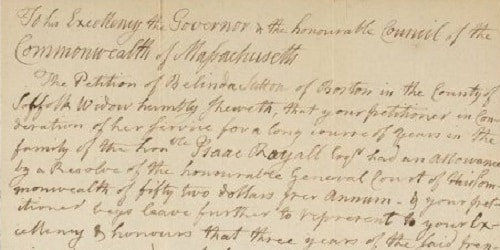 To his Excellency the Governor & the honourable Council of the
Commonwealth of Massachusetts
The Petition of Belinda Sutton of Boston in the County of
Suffolk Widow humbly sheweth, that your petitioner in Con-
deration of her service for a long course of years in the
family of the Honble Isaac Royall Esqr had an allowance
by a Resolve of the honourable General Court of this Com
monwealth of fifty two dollars per Annum. & your peti
tioner begs leave further to represent to your Ex
cellency & honours that three years of the said